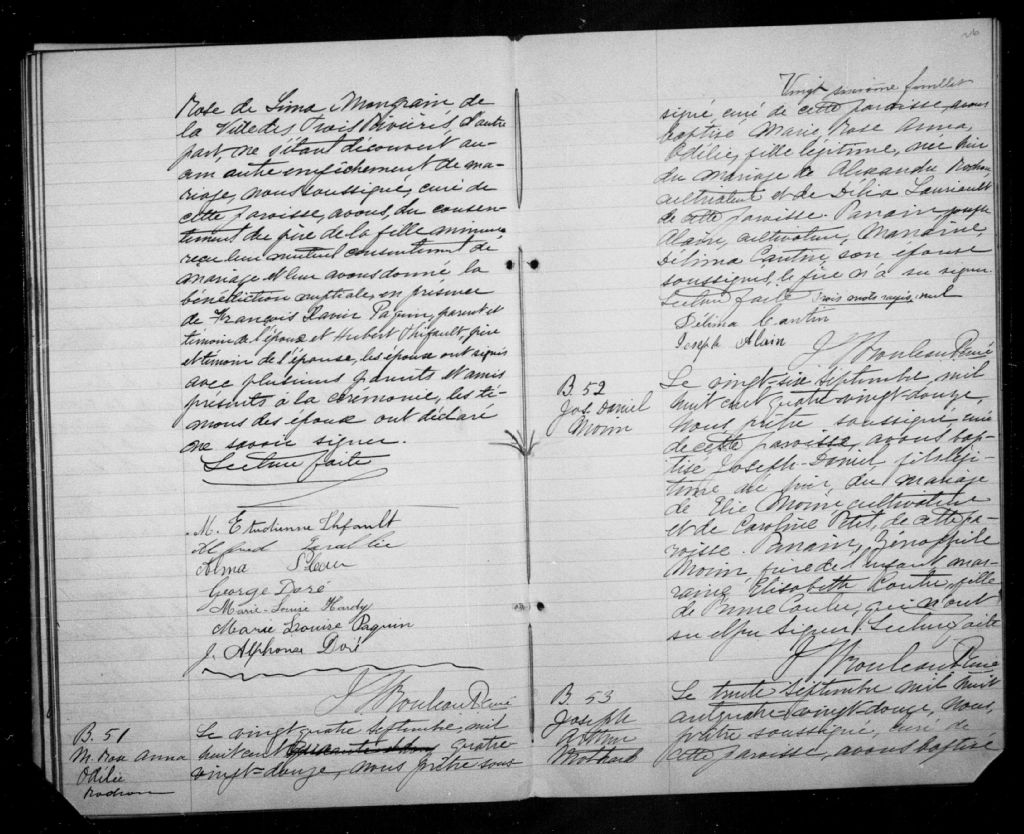 Rose de Lima Mongrain de
la Ville des Trois Rivières, d'autre
part, ne s'étant découvert au-
cun autre empêchement de ma-
riage, nous soussigné, curé de
cette paroisse, avons, du consen-
tement du père de la fille mineure
reçu leur mutuel consentement de
mariage et leur avons donné la
bénédiction nuptiale, en présence
de François Xavier Paquin, parent et
témoin de l'époux et Hubert Thifault, père
et témoin de l'épouse, les époux ont signé
avec plusieurs parents et amis
présents à la cérémonie, les té-
moins des époux ont déclaré
ne savoir signer.
Lecture faite
M. Thifault
Alfred
Alma
George Doré
Marie-Louise Hardy
Marie Louise Paquin
J. Alphonse Doré
J Bouleau Ptre curé
B. 51
M. Rose Anna
Odélie
Rochon
Le vingt-quatre septembre, mil
huit cent quatre
vingt-douze, nous prêtre sous
26
Vingt sixième feuillet
signé, curé de cette paroisse, avons
baptisé Marie, Rose Anna,
Odélie, fille légitime, née hier
du mariage de Alexandre Rochon,
cultivateur et de Délia Lauriault
de cette paroisse. Parrain Joseph
Alain, cultivateur, Marraine,
Délima Cantin, son épouse
soussignés, le père n'a su signer.
Lecture faite trois mots rayés, nul
Délima Cantin
Joseph Alain
J Bouleau Ptre curé
B. 52
Jos. Daniel
Morin
Le vingt-six septembre, mil
huit cent quatre-vingt-douze,
Nous prêtre soussigné, curé
de cette paroisse, avons bap-
tisé Joseph-Daniel fils légi-
time né hier, du mariage
de Elie Morin cultivateur
et de Caroline de cette pa-
roisse. Parrain, Zénophile
Morin, frère de l'enfant, mar-
raine Elisabeth fille
de qui n'ont
su signer. Lecture faite
J Bouleau Ptre curé
B. 53
Joseph
Arthur
Le trente septembre mil huit
cent quatre-vingt-douze, nous,
prêtre soussigné, curé de
cette paroisse, avons baptisé